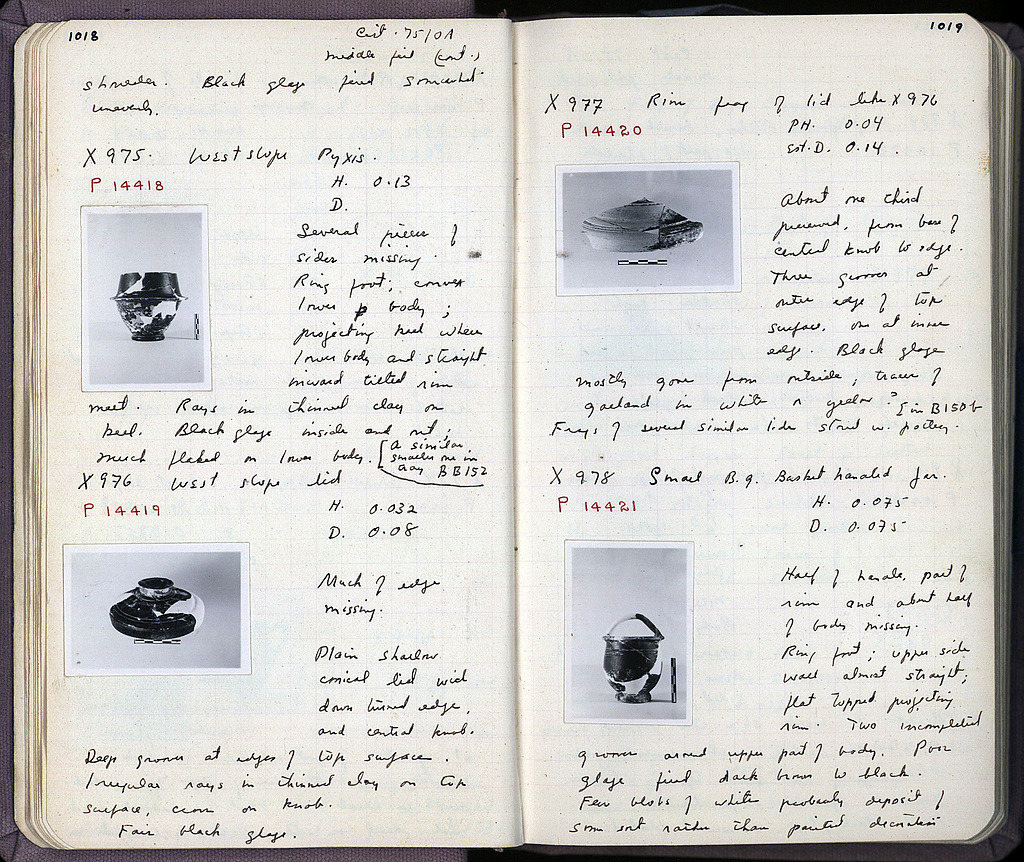 1018
Cist. 75/ΟΛ
middle fill (cont.)
shoulder. Black glaze fired somewhat
unevenly.
X 975. West slope Pyxis.
P 14418
H. 0.13
D.
Several pieces of
sides missing.
Ring foot; convex
lower body;
projecting keel where
lower body and straight
inward tilted rim
meet. Rays in thinned clay on
keel. Black glaze inside and out;
much flaked on lower body. [a similar
smaller one in
BB152
X 976 West slope lid
P 14419
H. 0.032
D. 0.08
Much of edge
missing.
Plain shallow
conical lid with
down turned edge,
and central knob.
Deep grooves at edges of top surface.
Irregular rays in thinned clay on top
surface, on knob.
Fair black glaze.
1019
X 977 Rim frag of lid like X 976
P 14420
PH. 0.04
Est. D. 0.14.
About one third
preserved, from base of
central knob to edge.
Three grooves at
outer edge of top
surface, one at inner
edge. Black glaze
mostly gone from outside; traces of
garland in white or yellow? [in B150b
Frags of several similar lids stored w. pottery.
X 978 Small B.g. Basket handled Jar.
P 14421
H. 0.075
D. 0.075
Half of handle, part of
rim and about half
of body missing.
Ring foot; upper side
wall almost straight;
flat topped projecting
rim. Two incompleted
grooves around upper part of body. Poor
glaze fired dark brown to black.
Few blobs of white probably deposit of
some sort rather than painted decoration